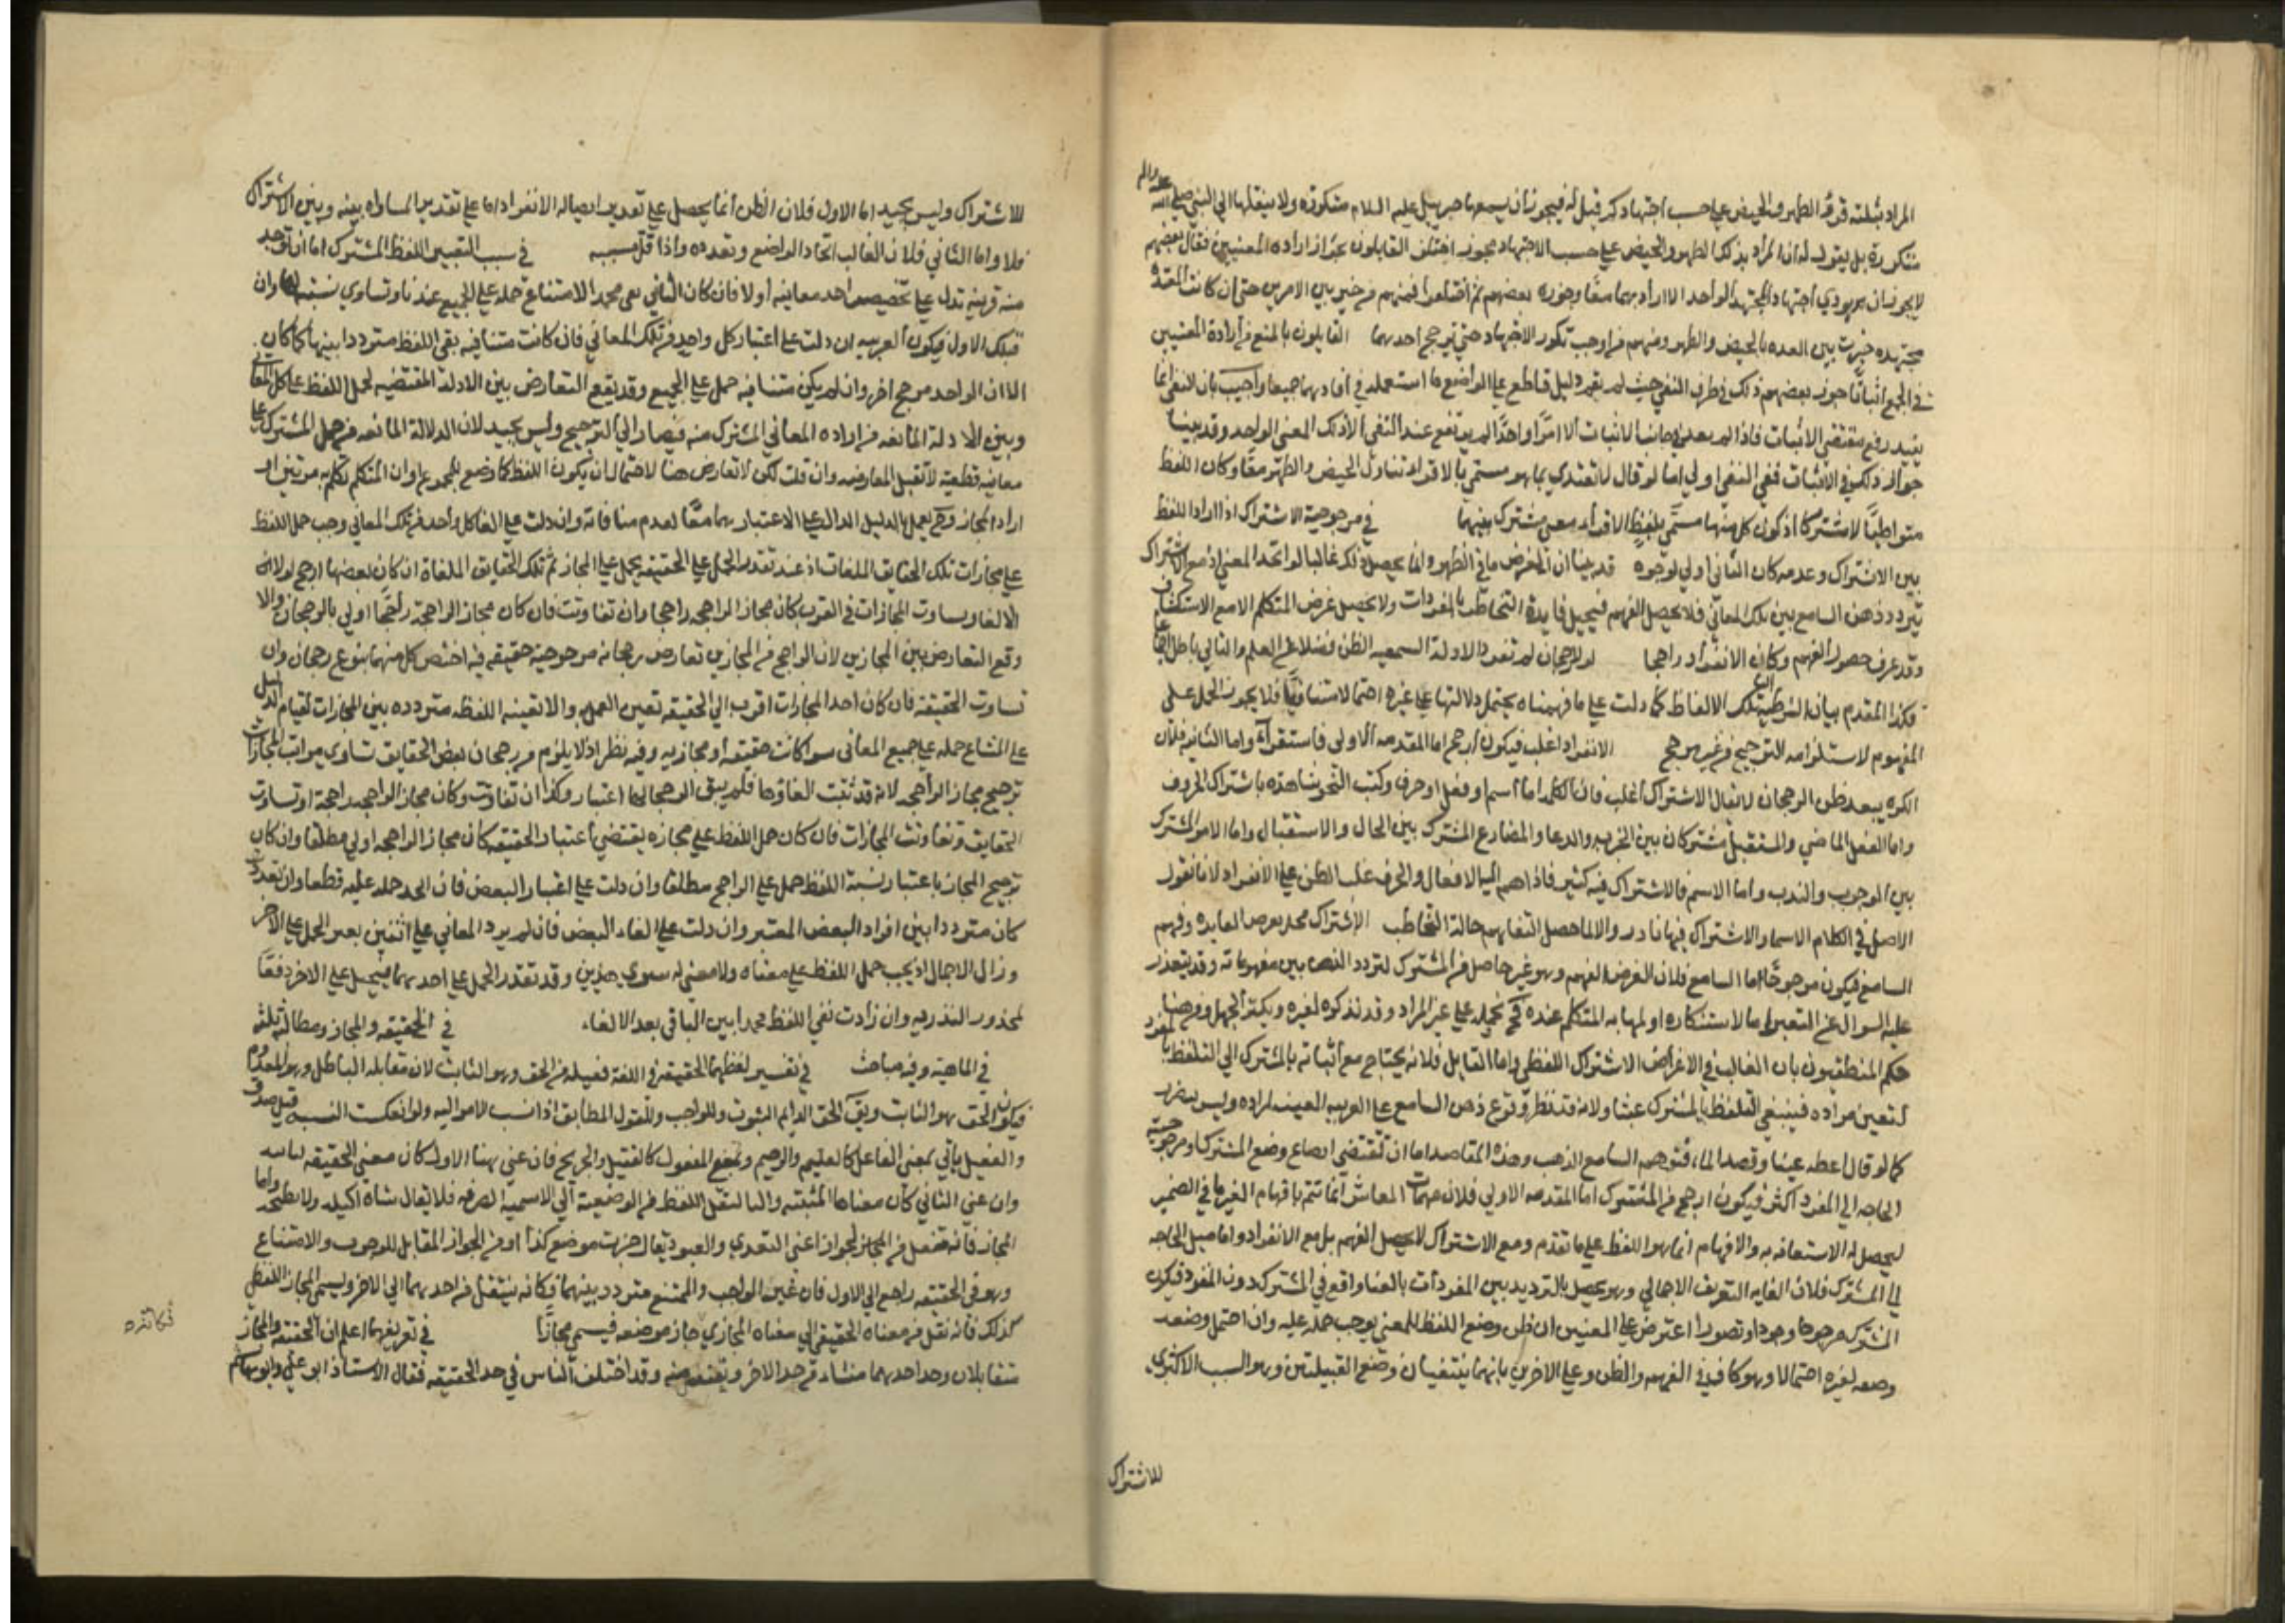 المراد بثلثة قروء الطهر والحيض على حسب اجتهادكم قيل له فيجوز أن يسمعها جبرييل عليه السلام متكررة ولا ينقلها الى النبي صلى الله عليه واله
متكررة بل يقول له ان المراد بذلك الطهر والحيض على حسب الاجتهاد يجوز اختلف القايلون بجواز ارادة المعنيين فقال بعضهم
لا يجوز ان يودي اجتهاد المجتهد الواحد الا ارادتهما معًا وجوزه بعضهم ثم اختلفوا فمنهم من خير بين الامرين حتى ان كانت المعتدة
مجتهدة خيرت بين العدة بالحيض والطهر ومنهم من اوجب تكرر الاجتهاد حتى يترجح احدهما القايلون بالمنع من ارادة المعنيين
في الجمع اثباتًا جوز بعضهم ذلك في طرف النفي حيث لم يقم دليل قاطع على الواضع ما استعمله في افادتهما جميعا واجيب بان النفي انما
يفيد رفع مقتضى الاثبات فاذا لم يفد في جانب الاثبات الا امرًا واحدًا لم يرتفع عند النفي الا ذلك المعنى الواحد وقد بينا
جواز ذلك في الاثبات ففي النفي اولى اما لو قال لا تعتدي بما هو مسمى بالاقراء تناول الحيض والطهر معًا وكان اللفظ
متواطيًا لا مشتركًا اذ كون كل منهما مسمى بلفظ الاقراء معنى مشترك بينهما في مرجوحية الاشتراك اذا دار اللفظ
بين الاشتراك وعدمه كان الثاني اولى لوجوه قد بينا ان الغرض ما في الظهور وانما يحصل ذلك غالبا لو اتحد المعنى اذ مع الاشتراك
يتردد ذهن السامع بين تلك المعاني فلا يحصل الفهم فيختل فايدة التخاطب بالمفردات ولا يحصل غرض المتكلم الا مع الاستكشاف
وقد عرف حصول الفهم وكان الانفراد راجحا لولا الرجحان لم تفد الادلة السمعية الظن فضلا عن العلم والتالي باطل اجماعا
فكذا المقدم بيان الشرطية ان تلك الالفاظ كما دلت على ما فهمناه يحتمل دلالتها على غيره احتمالا متنافيًا فلا يجوز الحمل على
المفهوم لاستلزامه الترجيح من غير مرجح الانفراد اغلب فيكون ارجح اما المقدمة الاولى فاستقراء واما الثانية فلان
الكثرة يبعد ظن الرجحان لا يقال الاشتراك اغلب فان الكلمة اما اسم او فعل او حرف وكتب النحو شاهدة باشتراك الحروف
واما الفعل الماضي والمستقبل مشتركان بين الخبر والدعا والمضارع المشترك بين الحال والاستقبال واما الامر المشترك
بين الوجوب والندب واما الاسم فالاشتراك فيه كثير فاذا ضم اليها الافعال والحرف غلب الظن على الانفراد لانا نقول
الاصل في الكلام الاسما والاشتراك فيها نادر والا لما حصل التفاهم حالة التخاطب الاشتراك مخل بغرض القايل وفهم
السامع فيكون مرجوحًا اما السامع فلان الغرض الفهم وهو غير حاصل في المشترك لتردد الذهن بين مفهوماته وقد يتعذر
عليه السوال عن التعيين اما لاستنكاره او لمهابة المتكلم عنده فح يحمله على غير المراد وقد يذكره لغيره ويكثر الجهل ومن هنا
حكم المنطقيون بان الغالب في الاغراض الاشتراك اللفظي واما القايل فلانه يحتاج مع اتيانه بالمشترك الى التلفظ بالمفرد
لتعيين مراده فينبغي التلفظ بالمشترك عبثا ولانه قد يظن وقوع ذهن السامع على القرينة المعينة لمراده وليس يعرف
كما لو قال اعطه عينًا وقصد الماء فتوهم السامع الذهب وهذه المقاصد اما ان تقتضي امتناع وضع المشترك او مرجوحيته
الحاجة الى المفرد اكثر فيكون ارجح من المشترك اما المقدمة الاولى فلان مهمات المعاش انما تتم بافهام الغير ما في الضمير
ليحصل له الاستعانة به والافهام انما هو اللفظ على ما تقدم ومع الاشتراك لا يحصل الفهم بل مع الانفراد واما ميل الحاجة
الى المشترك فلان الغاية التعريف الاجمالي وهو يحصل بالترديد بين المفردات بالعنا واقع في المشترك دون المفرد فيكون
المشترك مرجوحا وجودا وتصورا اعترض على المعنيين ان ظن وضع اللفظ للمعنى يوجب حمله عليه وان احتمل وضعه
وضعه لغيره احتمالا وهو كاف في الفهم والظن وعلى الاخرين بانهما ينتفيان وضع القبيلتين وهو السبب الاكثري
للاشتراك
للاشتراك وليس بجيد اما الاول فلان الظن انما يحصل على تقدير اصالة الانفراد اما على تقدير المساواة بينه وبين الاشتراك
فلا واما الثاني فلان الغالب اتحاد الواضع وتعدده واذا قل سببه في سبب التعيين اللفظ المشترك اما ان توجد
معه قرينة تدل على تخصيص احد معانيه او لا فان كان الثاني بقي مجملا لامتناع حمله على الجميع عندنا وتساوي نسبته اليها وان
كان الاول فيكون القرينة ان دلت على اعتبار كل واحد من تلك المعاني فان كانت متنافية بقي اللفظ مترددا بينها كما كان
الا ان الواحد مرجح اخر وان لم يكن متنافية حمل على الجميع وقد يقع التعارض بين الادلة المقتضية لحمل اللفظ على كل المعاني
وبين الادلة المانعة من ارادة المعاني المشترك منه فيصار الى الترجيح وليس بجيد لان الدلالة المانعة من حمل المشترك على
معانيه قطعية لا تقبل المعارضة وان قلت لكن لا تعارض هنا لاحتمال ان يكون اللفظ كما وضع للمجموع وان المتكلم تكلم به مرتين او
اراد المجاز وح يعمل بالدليل الدال على الاعتبار بهما معًا لعدم منافاة وان دلت على الغا كل واحد من تلك المعاني وجب حمل اللفظ
على مجازات تلك الحقايق الملغات اذ عند تعذر الحمل على الحقيقة يحمل على المجاز ثم تلك الحقايق الملغاة ان كان بعضها ارجح لولا ان
الالغا وتساوت المجازات في القرب كان مجاز الراجحة راجحا وان تفاوتت فان كان مجاز الراجحة راجحًا اولى بالرجحان والا
وقع التعارض بين المجازين لان الراجح من المجازين تعارض رجحانه مرجوحية حقيقته فيه اختص كل منهما بنوع رجحان وان
تساوت الحقيقة فان كان احد المجازات اقرب الى الحقيقة تعين العمل به والا تعينه اللفظة مترددة بين المجازات لقيام الدليل
على امتناع حمله على جميع المعاني سوا كانت حقيقة او مجازية وفيه نظر اذ لا يلزم من رجحان بعض الحقايق تساوى مراتب المجازات
ترجيح مجاز الراجحة لانه قد ثبت الغاؤها فلم يبق الرجحانها اعتبار وكذا ان تفاوتت وكان مجاز الراجحة راجحة او تساوت
الحقايق وتفاوتت المجازات فان كان حمل اللفظ على مجازه يقتضي اعتبار الحقيقة كان مجاز الراجحة اولى مطلقا وان كان
ترجيح المجاز باعتبار نسبة اللفظ حمل على الراجح مطلقا وان دلت على اعتبار البعض فان اتحد حمله عليه قطعا وان تعددت
كان مترددا بين افراد البعض المعتبر وان دلت على الغاء البعض فان لم يزد المعاني على اثنين تعين الحمل على الاخر
وزال الاجمال اذ يجب حمل اللفظ على معناه ولا معنى له سوى هذين وقد تعذر الحمل على احدهما فيحمل على الاخر دفعًا
لمحذور النذرية وان زادت نفي اللفظ مجملا بين الباقي بعد الالغاء في الحقيقة والمجاز ومطالبه ثلثة
في الماهية وفيه مباحث في تفسير لفظهما الحقيقة في اللغة فعيلة من الحق وهو الثابت لان مقابله الباطل وهو المعدوم
فيكون الحق هو الثابت ويق الحق الدايم الثبوت وللواجب وللقول المطابق اذا نسب الامر اليه ولو انعكست النسبة قيل صدق
والفعيل ياتي بمعنى الفاعل كالعليم والرحيم وبمعنى المفعول كالقتيل والجريح فان عنى بهنا الاول كان معنى الحقيقة الثابتة
وان عنى الثاني كان معناها المثبتة والتا لنقل اللفظ من الوضعية الى الاسمية الصرفة فلا يقال شاة اكيلة ولا نطيحة واما
المجاز فانه مفعل من المجاز الجواز اعنى التعدي والعبور يقال جزت موضع كذا او من الجواز المقابل للوجوب والامتناع
وهو في الحقيقة راجع الى الاول فان غير الواجب والممتنع متردد بينهما فكانه ينتقل من احدهما الى الاخر ويسمى المجاز اللفظي
كذلك فانه نقل من معناه الحقيقي الى معناه المجازي جاز موضعه فيسمى مجازًا في تعريفهما اعلم ان الحقيقة والمجاز
متقابلان وحد احدهما منشاء من حد الاخر ويقتضيه وقد اختلف الناس في حد الحقيقة فقال الاستاذ ابو علي وابو هاشم